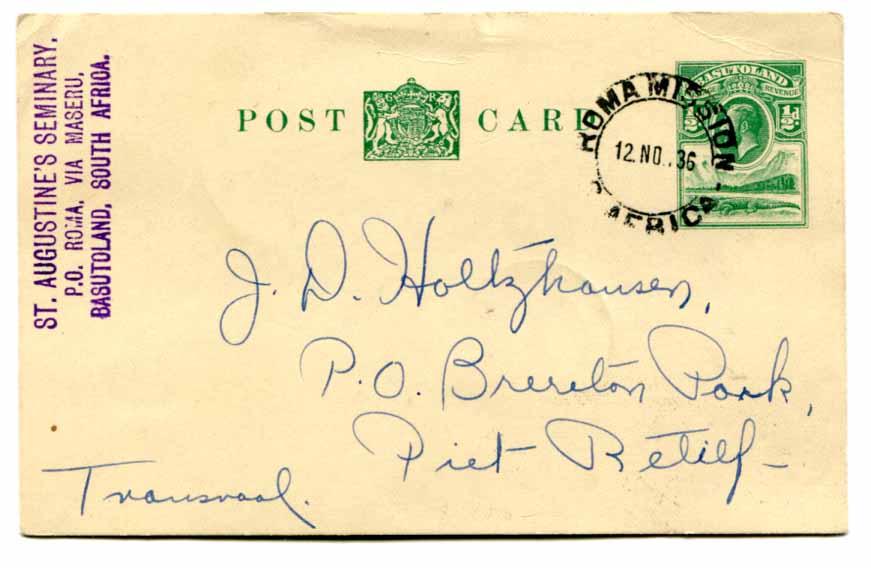 ST. AUGUSTINE'S SEMINARY,
P.O. ROMA, VIA MASERU,
BASUTOLAND, SOUTH AFRICA.
POST CARD
BASUTOLAND
REVENUE
½ ½d
ROMA MISSION
12.NO..36
AFRICA
J. D. Holtzhausen,
P.O. Brereton Park,
Piet Retief -
Transvaal.